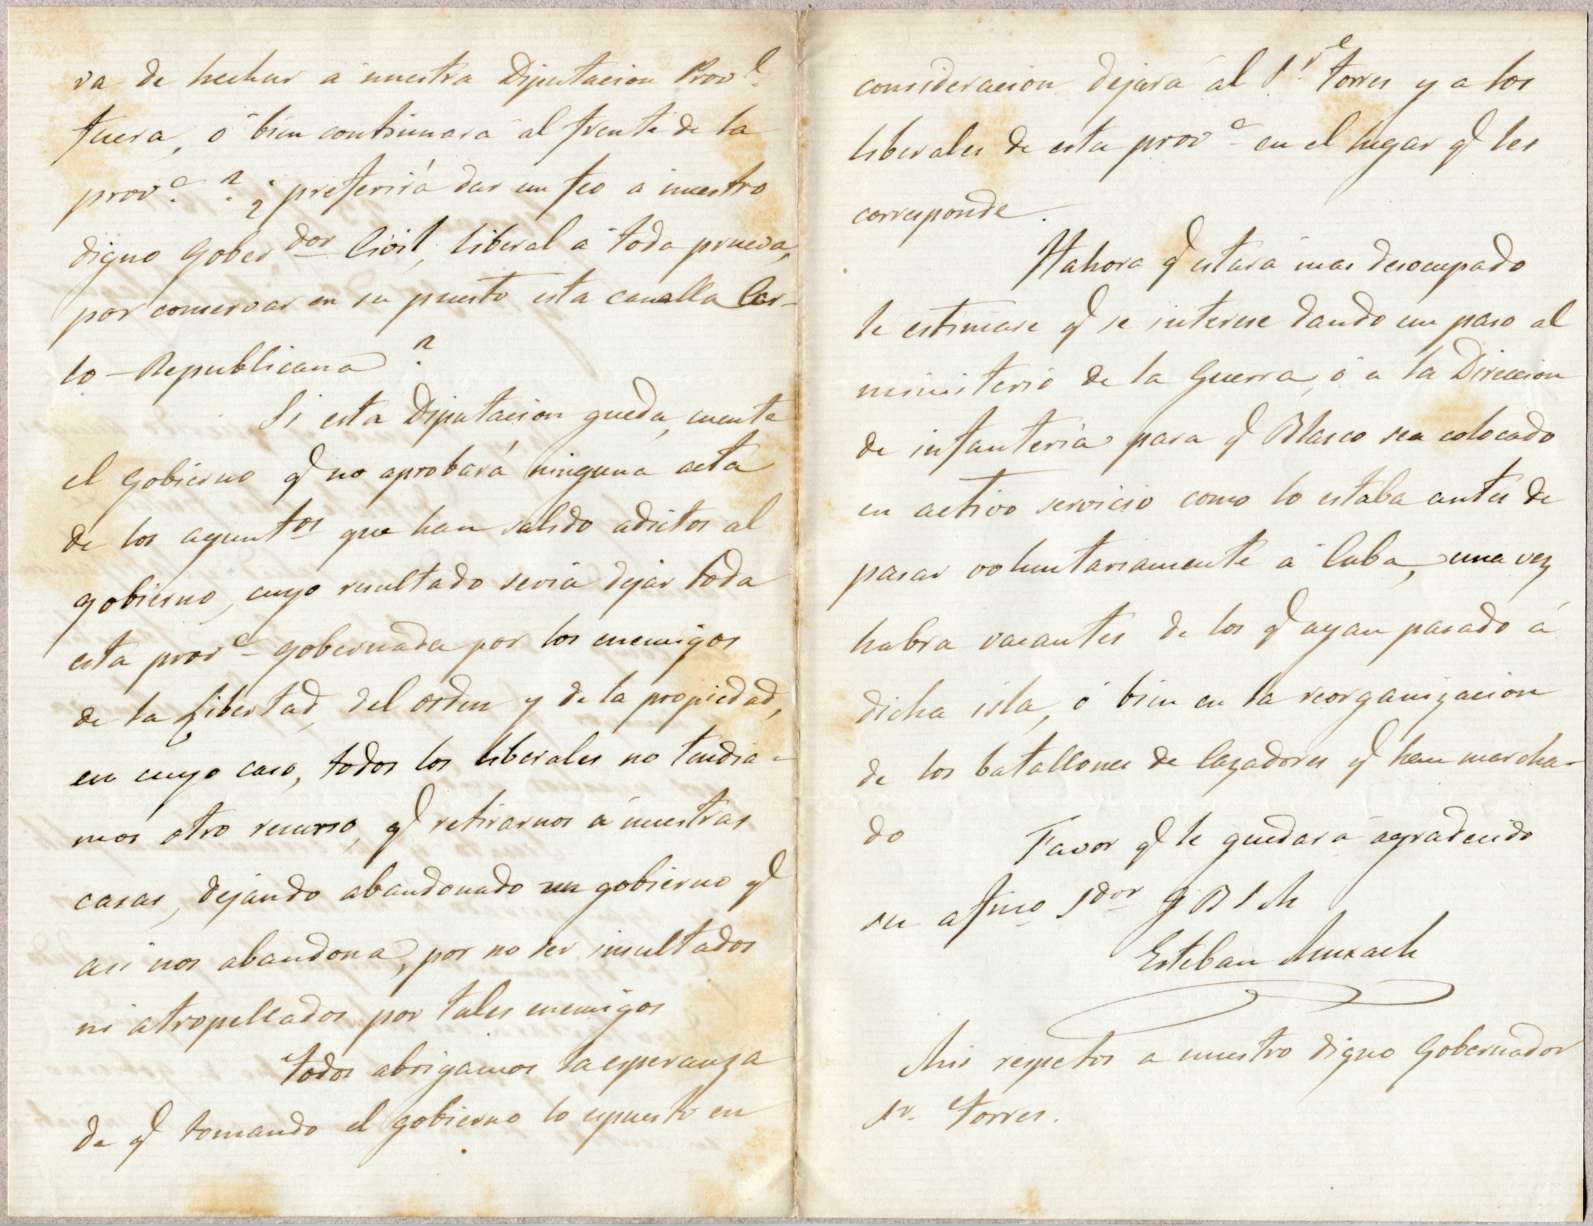 va de hechar a nuestra Diputacion Prov.l
fuera, o bien continuara al frente de la
prov.a ? ¿ preferirá dar un feo a nuestro
digno Goberdor Civil, liberal a toda prueva,
por conservar en su puesto esta canalla Car-
lo-Republicana ?
Si esta Diputacion queda, cuente
el Gobierno q no aprobará ninguna acta
de los ayuntos que han salido adictos al
gobierno, cuyo resultado seria dejar toda
esta prova gobernada por los enemigos
de la Libertad, del orden y de la propiedad,
en cuyo caso, todos los liberales no tendria-
mos otro recurso, q retirarnos á nuestras
casas, dejando abandonado un gobierno q
asi nos abandona, por no ser insultados
ni atropellados por tales enemigos
todos abrigamos la esperanza
de q tomando el gobierno lo espuesto en
consideracion dejará al Sr Torres y a los
liberales de esta prova en el lugar q les
corresponde.
Hahora q estara mas desocupado
le estimare q se interese dando un paso al
ministerio de la Guerra, ó a la Direccion
de infanteria para q Blasco sea colocado
en activo servicio como lo estaba antes de
pasar voluntariamente á Cuba, una vez
habra vacantes de los q ayan pasado á
dicha isla, ó bien en la reorganizacion
de los batallones de Cazadores q han marcha-
do Favor q le quedará agradecido
su afmo Sdor q B S M
Esteban
Mis respetos a nuestro digno Gobernador
Sr. Torres.